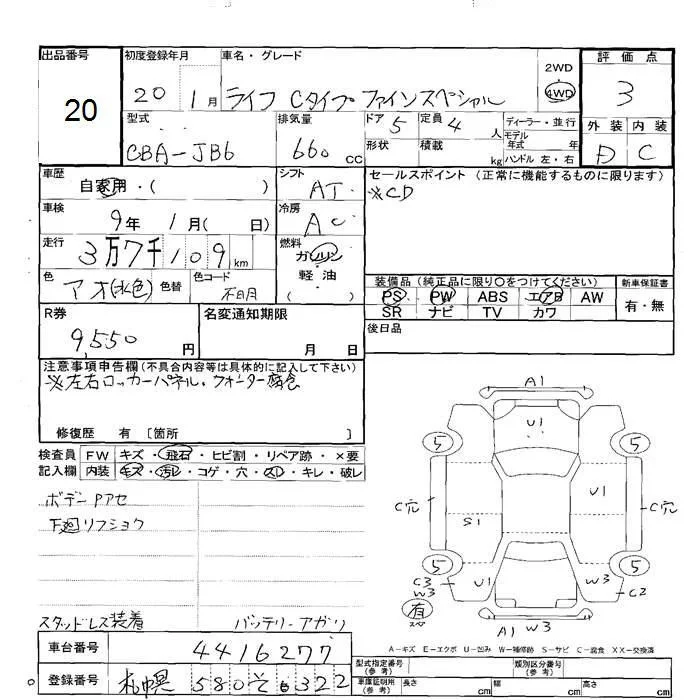 出品番号
20
初度登録年月
20 1月
車名・グレード
ライフ Cタイプ ファインスペシャル
2WD
4WD
評価点
3
型式
CBA-JB6
排気量
660 CC
ドア 5
形状
定員 4 人
積載 kg
ディーラー・並行
モデル年式 年
ハンドル 左・右
外装 内装
D C
車歴
自家用・( )
シフト
AT
セールスポイント (正常に機能するものに限ります)
※CD
車検
9年 1月( 日)
冷房
AC
走行
3万7千109km
燃料
ガソリン
軽油
( )
色
アオ(水色)
色替
色コード
不明
装備品 (純正品に限り○をつけてください)
PS PW ABS エアB AW
SR ナビ TV カワ
新車保証書
有・無
R券
9,550 円
名変通知期限
月 日
後日品
注意事項申告欄 (不具合内容等は具体的に記入して下さい)
※左右ロッカーパネル・クォーター腐食
修復歴 有 〔箇所 〕
検査員記入欄
FW キズ・飛石・ヒビ割・リペア跡・×要
内装 キズ・汚レ・コゲ・穴・スレ・キレ・破レ
ボデーPアセ
下廻リフショク
スタッドレス装着
バッテリーアガリ
A1
U1
5
5
C穴
U1
C穴
S1
5
5
C3
W3
U1
W3
C2
有
スペ
A1 W3
A-キズ E-エクボ U-凹み W-補修跡 S-サビ C-腐食 XX-交換済
車台番号
4416277
登録番号
札幌 580 6322
型式指定番号
(参考)
類別区分番号
(参考)
車庫証明用
(参考)
長さ cm
幅 cm
高さ cm